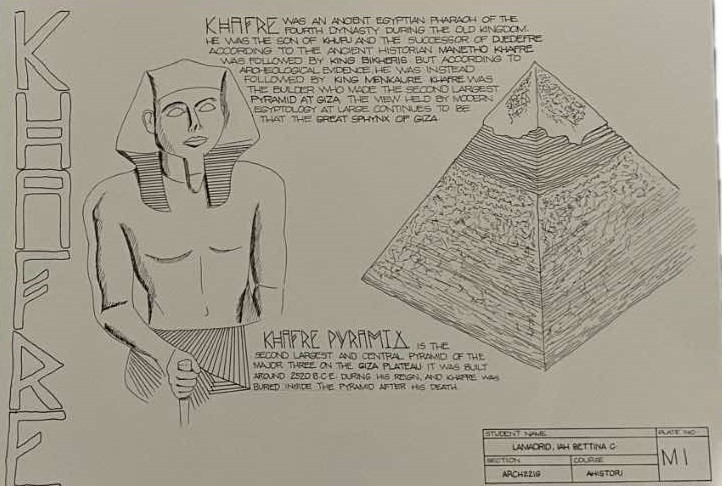 KHAFRE
KHAFRE WAS AN ANCIENT EGYPTIAN PHARAOH OF THE
FOURTH DYNASTY DURING THE OLD KINGDOM.
HE WAS THE SON OF KHUFU AND THE SUCCESSOR OF DJEDEFRE
ACCORDING TO THE ANCIENT HISTORIAN MANETHO KHAFRE
WAS FOLLOWED BY KING BIKHERIS, BUT ACCORDING TO
ARCHEOLOGICAL EVIDENCE, HE WAS INSTEAD
FOLLOWED BY KING MENKAURE. KHAFRE WAS
THE BUILDER WHO MADE THE SECOND LARGEST
PYRAMID AT GIZA. THE VIEW HELD BY MODERN
EGYPTOLOGY AT LARGE CONTINUES TO BE
THAT THE GREAT SPHYNX OF GIZA
KHAFRE PYRAMID IS THE
SECOND LARGEST AND CENTRAL PYRAMID OF THE
MAJOR THREE ON THE GIZA PLATEAU. IT WAS BUILT
AROUND 2520 B.C.E. DURING HIS REIGN, AND KHAFRE WAS
BURIED INSIDE THE PYRAMID AFTER HIS DEATH.
STUDENT NAME
LAMADRID, IAH BETTINA C.
PLATE NO.
M1
SECTION
ARCH221G
COURSE
AHISTOR1